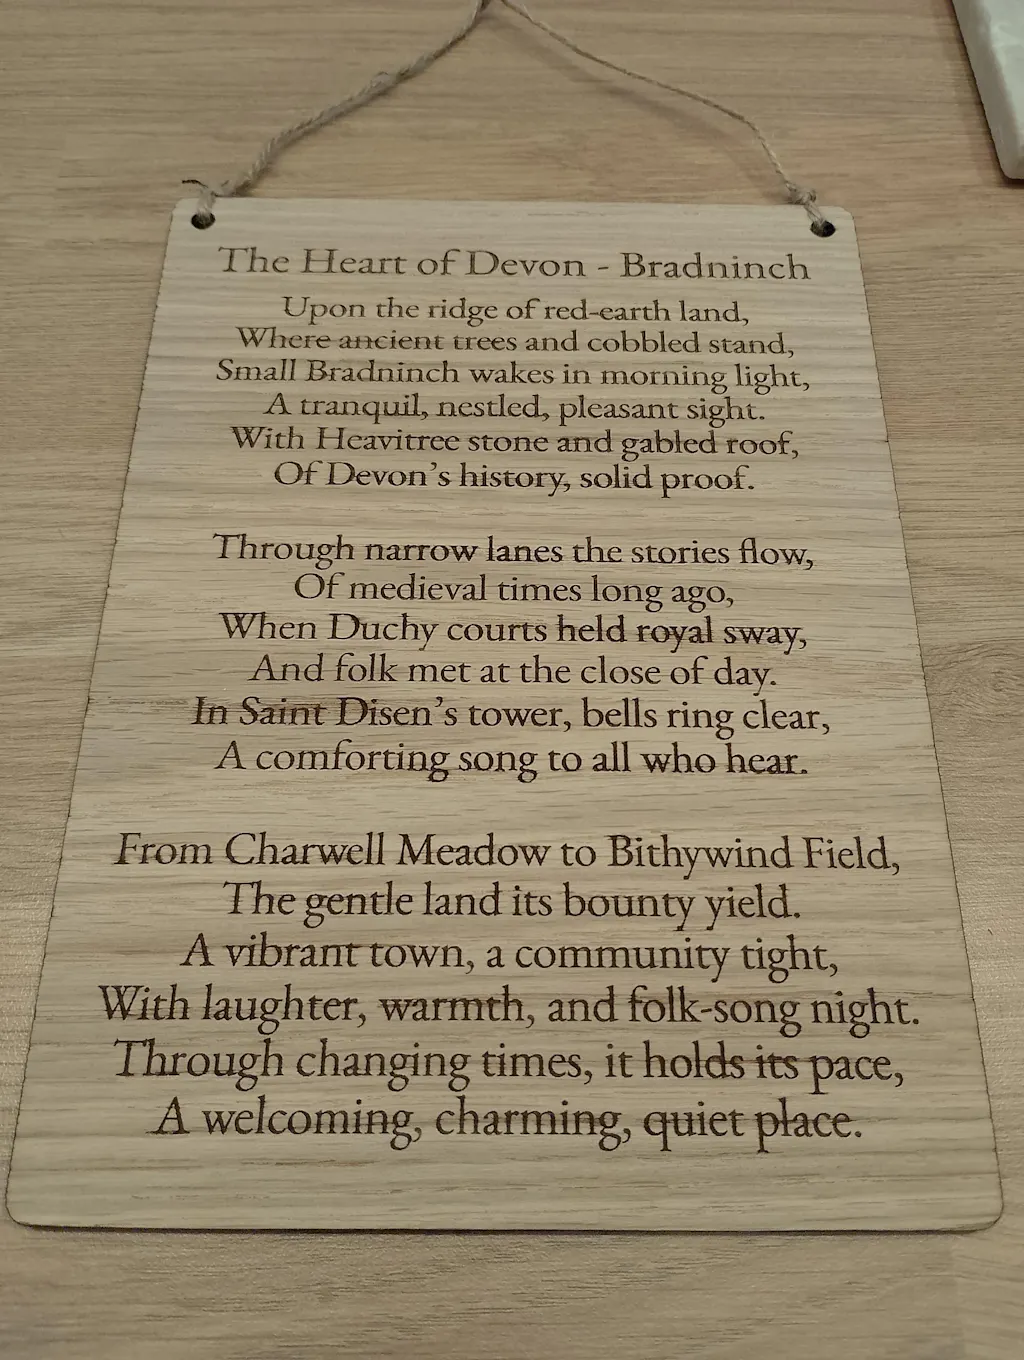 The Heart of Devon - Bradninch
Upon the ridge of red-earth land,
Where ancient trees and cobbled stand,
Small Bradninch wakes in morning light,
A tranquil, nestled, pleasant sight.
With Heavitree stone and gabled roof,
Of Devon’s history, solid proof.
Through narrow lanes the stories flow,
Of medieval times long ago,
When Duchy courts held royal sway,
And folk met at the close of day.
In Saint Disen’s tower, bells ring clear,
A comforting song to all who hear.
From Charwell Meadow to Bithywind Field,
The gentle land its bounty yield.
A vibrant town, a community tight,
With laughter, warmth, and folk-song night.
Through changing times, it holds its pace,
A welcoming, charming, quiet place.